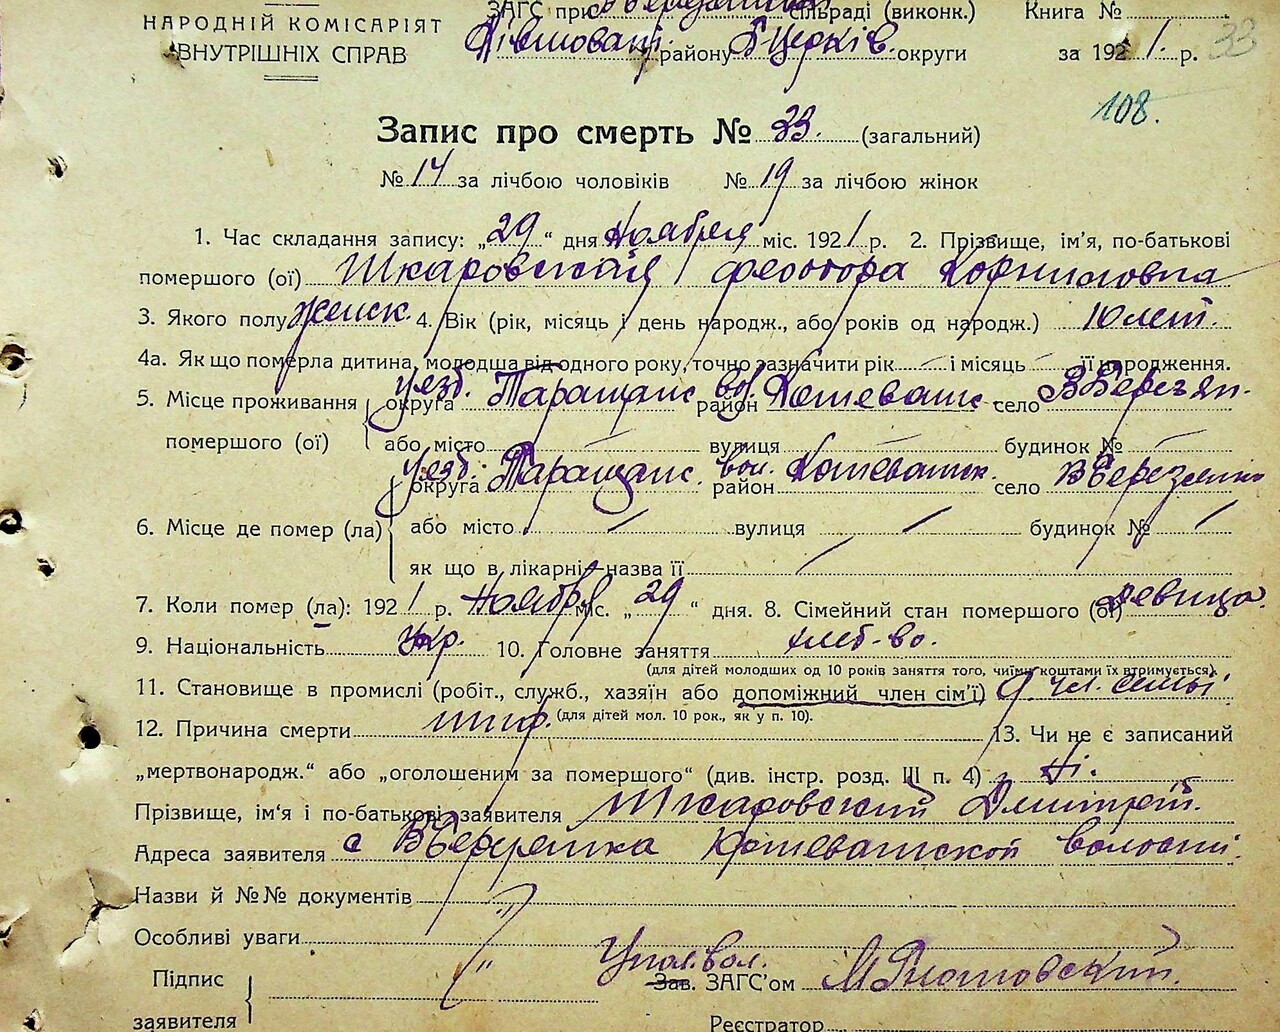 НАРОДНІЙ КОМІСАРІЯТ
ВНУТРІШНІХ СПРАВ
ЗАГС при сільраді (виконк.)
району Б Церків. округи
Книга №
за 1921. р. 33
108.
Запис про смерть № 33. (загальний)
№ 14 за лічбою чоловіків № 19 за лічбою жінок
1. Час складання запису: „29“ дня Ноября міс. 1921 р. 2. Прізвище, ім'я, по-батькові
помершого (ої) Шкаровская Корниловна
3. Якого полу женск. 4. Вік (рік, місяць і день народж., або років од народж.) 10 лет.
4а. Як що померла дитина, молодша від одного року, точно зазначити рік — і місяць — її народження.
5. Місце проживання помершого (ої)
уезд. округа Таращанс вол. район Кошеватс село В Березян.
або місто — вулиця — будинок № —
6. Місце де помер (ла)
уезд. округа Таращанс. вол. район Кошеватск. село В Березянка
або місто / вулиця / будинок № /
як що в лікарні—назва її /
7. Коли помер (ла): 1921 р. Ноября міс. „29“ дня. 8. Сімейний стан помершого (ої) девица.
9. Національність Укр. 10. Головне заняття хлеб-во.
(для дітей молодших од 10 років заняття того, чиїми коштами їх втримується).
11. Становище в промислі (робіт., служб., хазяїн або допоміжний член сім'ї) д чл. семьі
(для дітей мол. 10 рок., як у п. 10).
12. Причина смерти тиф. 13. Чи не є записаний
„мертвонародж.“ або „оголошеним за помершого“ (див. інстр. розд. III п. 4) Ні.
Прізвище, ім'я і по-батькові заявителя Шкаровский Дмитрий.
Адреса заявителя с В Березянка Кошеватской волости.
Назви й №№ документів "
Особливі уваги "
Підпис
заявителя
Упол. вол.
Зав. ЗАГС'ом
Реєстратор